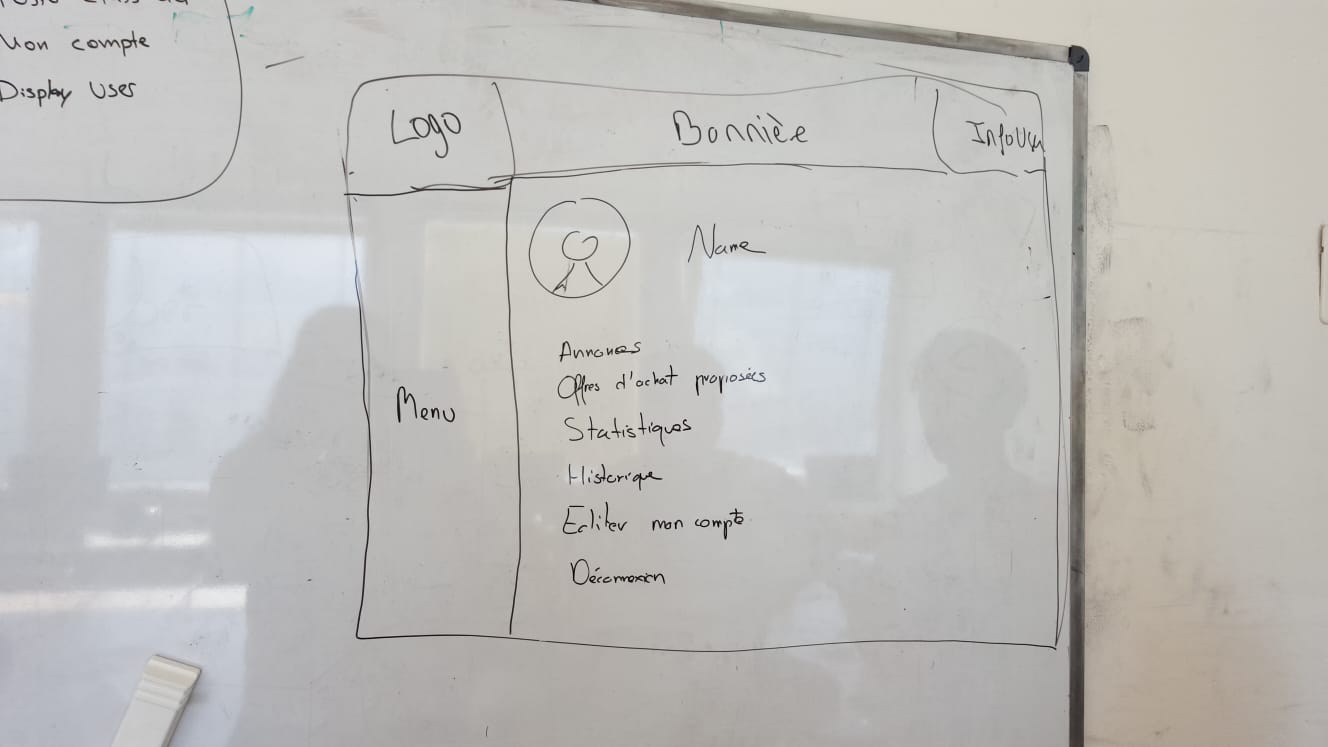 Mon compte
Display Uses
Logo
Bannière
Menu
Name
Annonces
Offres d'achat proposées
Statistiques
Historique
Editer mon compte
Déconnexion